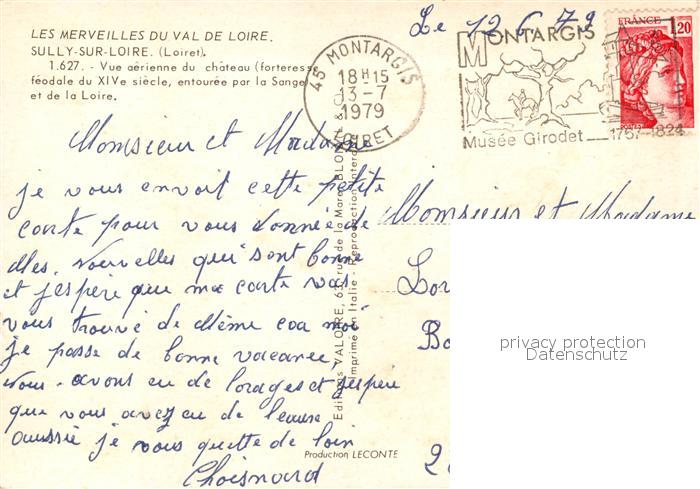 LES MERVEILLES DU VAL DE LOIRE.
SULLY-SUR-LOIRE. (Loiret).
1.627. - Vue aérienne du château (forteresse
féodale du XIVe siècle, entourée par la Sange
et de la Loire.
Le 12 6 79
45 MONTARGIS
18H15
13-7
1979
LOIRET
MONTARGIS
Musée Girodet
1767-1824
FRANCE
1,20
Monsieur et Madame
je vous envoit cette petite
carte pour vous donnée de
dles. Nouvelles qui sont bonne
et j'espère que ma carte vas
vous trouvé de même car moi
je passe de bonne vacance,
Nous avons eu de l'orages et j'espère
que vous avez eu de
aussie je vous quitte de loin
Choisnard
Editions VALOIRE, rue de la Marne, BLOIS
Imprimé en Italie - Reproduction interd
Production LECONTE
Monsieur et Madame
Lor
Bo
2
privacy protection
Datenschutz